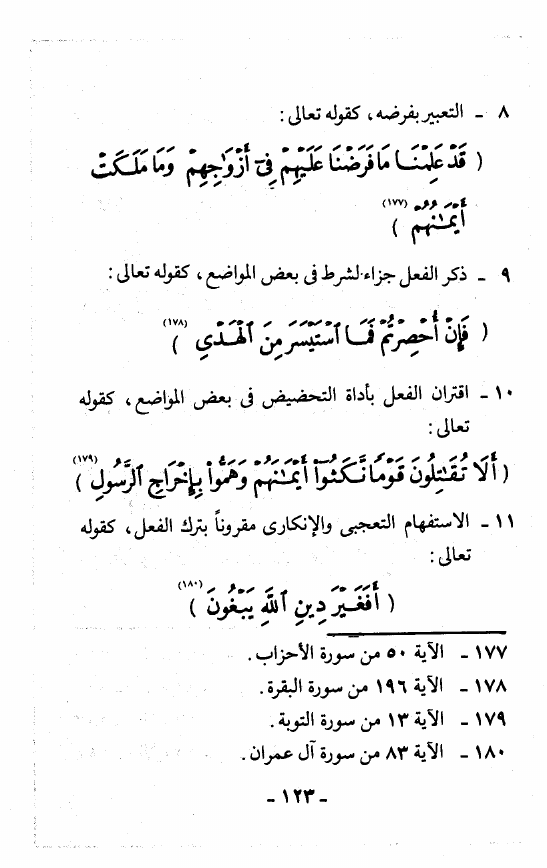 ٨ - التعبير بفرضه، كقوله تعالى:
( قَدْ عَلِمْنَا مَا فَرَضْنَا عَلَيْهِمْ فِىٓ أَزْوَٰجِهِمْ وَمَا مَلَكَتْ
أَيْمَـٰنُهُمْ (١٧٧) )
٩ - ذكر الفعل جزاء لشرط فى بعض المواضع، كقوله تعالى:
( فَإِنْ أُحْصِرْتُمْ فَمَا ٱسْتَيْسَرَ مِنَ ٱلْهَدْىِ (١٧٨) )
١٠ - اقتران الفعل بأداة التحضيض فى بعض المواضع، كقوله
تعالى:
( أَلَا تُقَـٰتِلُونَ قَوْمًا نَّكَثُوٓا۟ أَيْمَـٰنَهُمْ وَهَمُّوا۟ بِإِخْرَاجِ ٱلرَّسُولِ (١٧٩) )
١١ - الاستفهام التعجبى والإنكارى مقروناً بترك الفعل، كقوله
تعالى:
( أَفَغَيْرَ دِينِ ٱللَّهِ يَبْغُونَ (١٨٠) )
١٧٧ - الآية ٥٠ من سورة الأحزاب.
١٧٨ - الآية ١٩٦ من سورة البقرة.
١٧٩ - الآية ١٣ من سورة التوبة.
١٨٠ - الآية ٨٣ من سورة آل عمران.
- ١٢٣ -